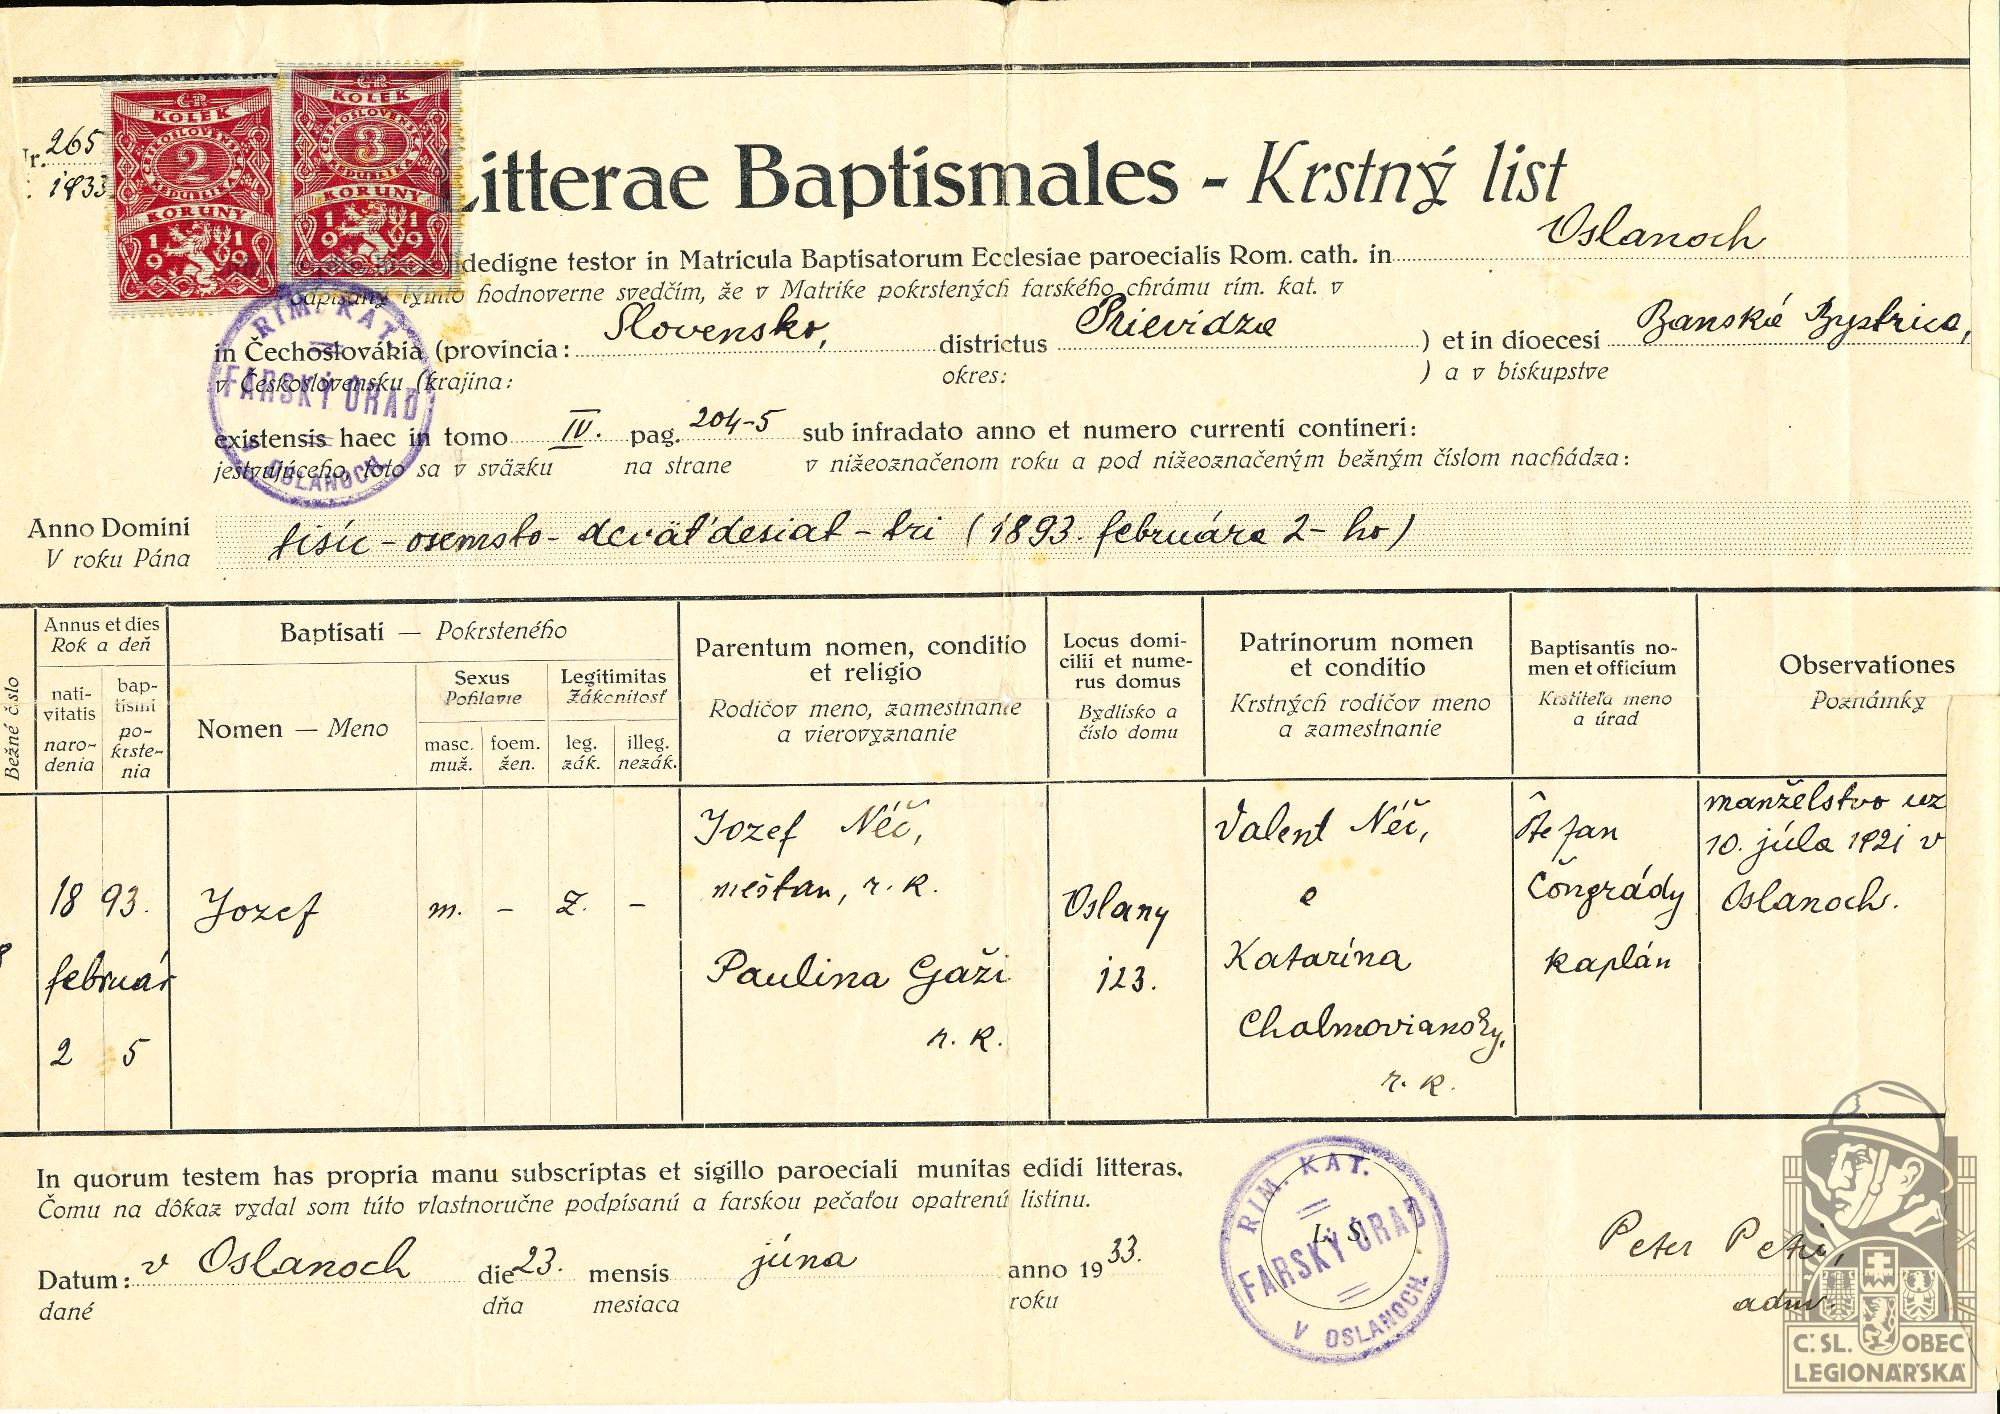 265
1933
ČR
KOLEK
ČESKOSLOVENSKÁ
2
REPUBLIKA
KORUNY
1919
ČR
KOLEK
ČESKOSLOVENSKÁ
3
REPUBLIKA
KORUNY
1919
Litterae Baptismales - Krstný list
dedigne testor in Matricula Baptisatorum Ecclesiae paroecialis Rom. cath. in Oslanoch
podpísaný týmto hodnoverne svedčím, že v Matrike pokrstených farského chrámu rím. kat. v
in Čechoslovákia (provincia: Slovensko, districtus Prievidza ) et in dioecesi Banská Bystrica,
v Československu (krajina: okres: ) a v biskupstve
existensis haec in tomo IV. pag. 204-5 sub infradato anno et numero currenti contineri:
jestvujúceho, toto sa v sväzku na strane v nižeoznačenom roku a pod nižeoznačeným bežným číslom nachádza:
RIM. KAT.
FARSKÝ ÚRAD
V OSLANOCH
Anno Domini
V roku Pána
tisíc-osemsto-devät'desiat-tri (1893. februára 2-ho)
Bežné číslo
Annus et dies
Rok a deň
nati-
vitatis
naro-
denia
bap-
tismi
po-
krste-
nia
Baptisati — Pokrsteného
Nomen — Meno
Sexus
Pohlavie
masc.
muž.
foem.
žen.
Legitimitas
Zákonitosť
leg.
zák.
illeg.
nezák.
Parentum nomen, conditio
et religio
Rodičov meno, zamestnanie
a vierovyznanie
Locus domi-
cilii et nume-
rus domus
Bydlisko a
číslo domu
Patrinorum nomen
et conditio
Krstných rodičov meno
a zamestnanie
Baptisantis no-
men et officium
Krstiteľa meno
a úrad
Observationes
Poznámky
1893.
február
2 5
Jozef
m. - z. -
Jozef Néč,
mešťan, r. k.
Paulina Gaži
r. k.
Oslany
123.
Valent Néč,
a
Katarína
Chalmoviansky,
r. k.
Štefan
Čongrády
kaplán
manželstvo uz
10. júla 1921 v
Oslanoch.
In quorum testem has propria manu subscriptas et sigillo paroeciali munitas edidi litteras.
Čomu na dôkaz vydal som túto vlastnoručne podpísanú a farskou pečaťou opatrenú listinu.
Datum: v Oslanoch die 23. mensis júna anno 1933.
dané dňa mesiaca roku
RIM. KAT.
L. S.
FARSKÝ ÚRAD
V OSLANOCH
Peter Petri,
adm.
Č. SL. OBEC
LEGIONÁŘSKÁ